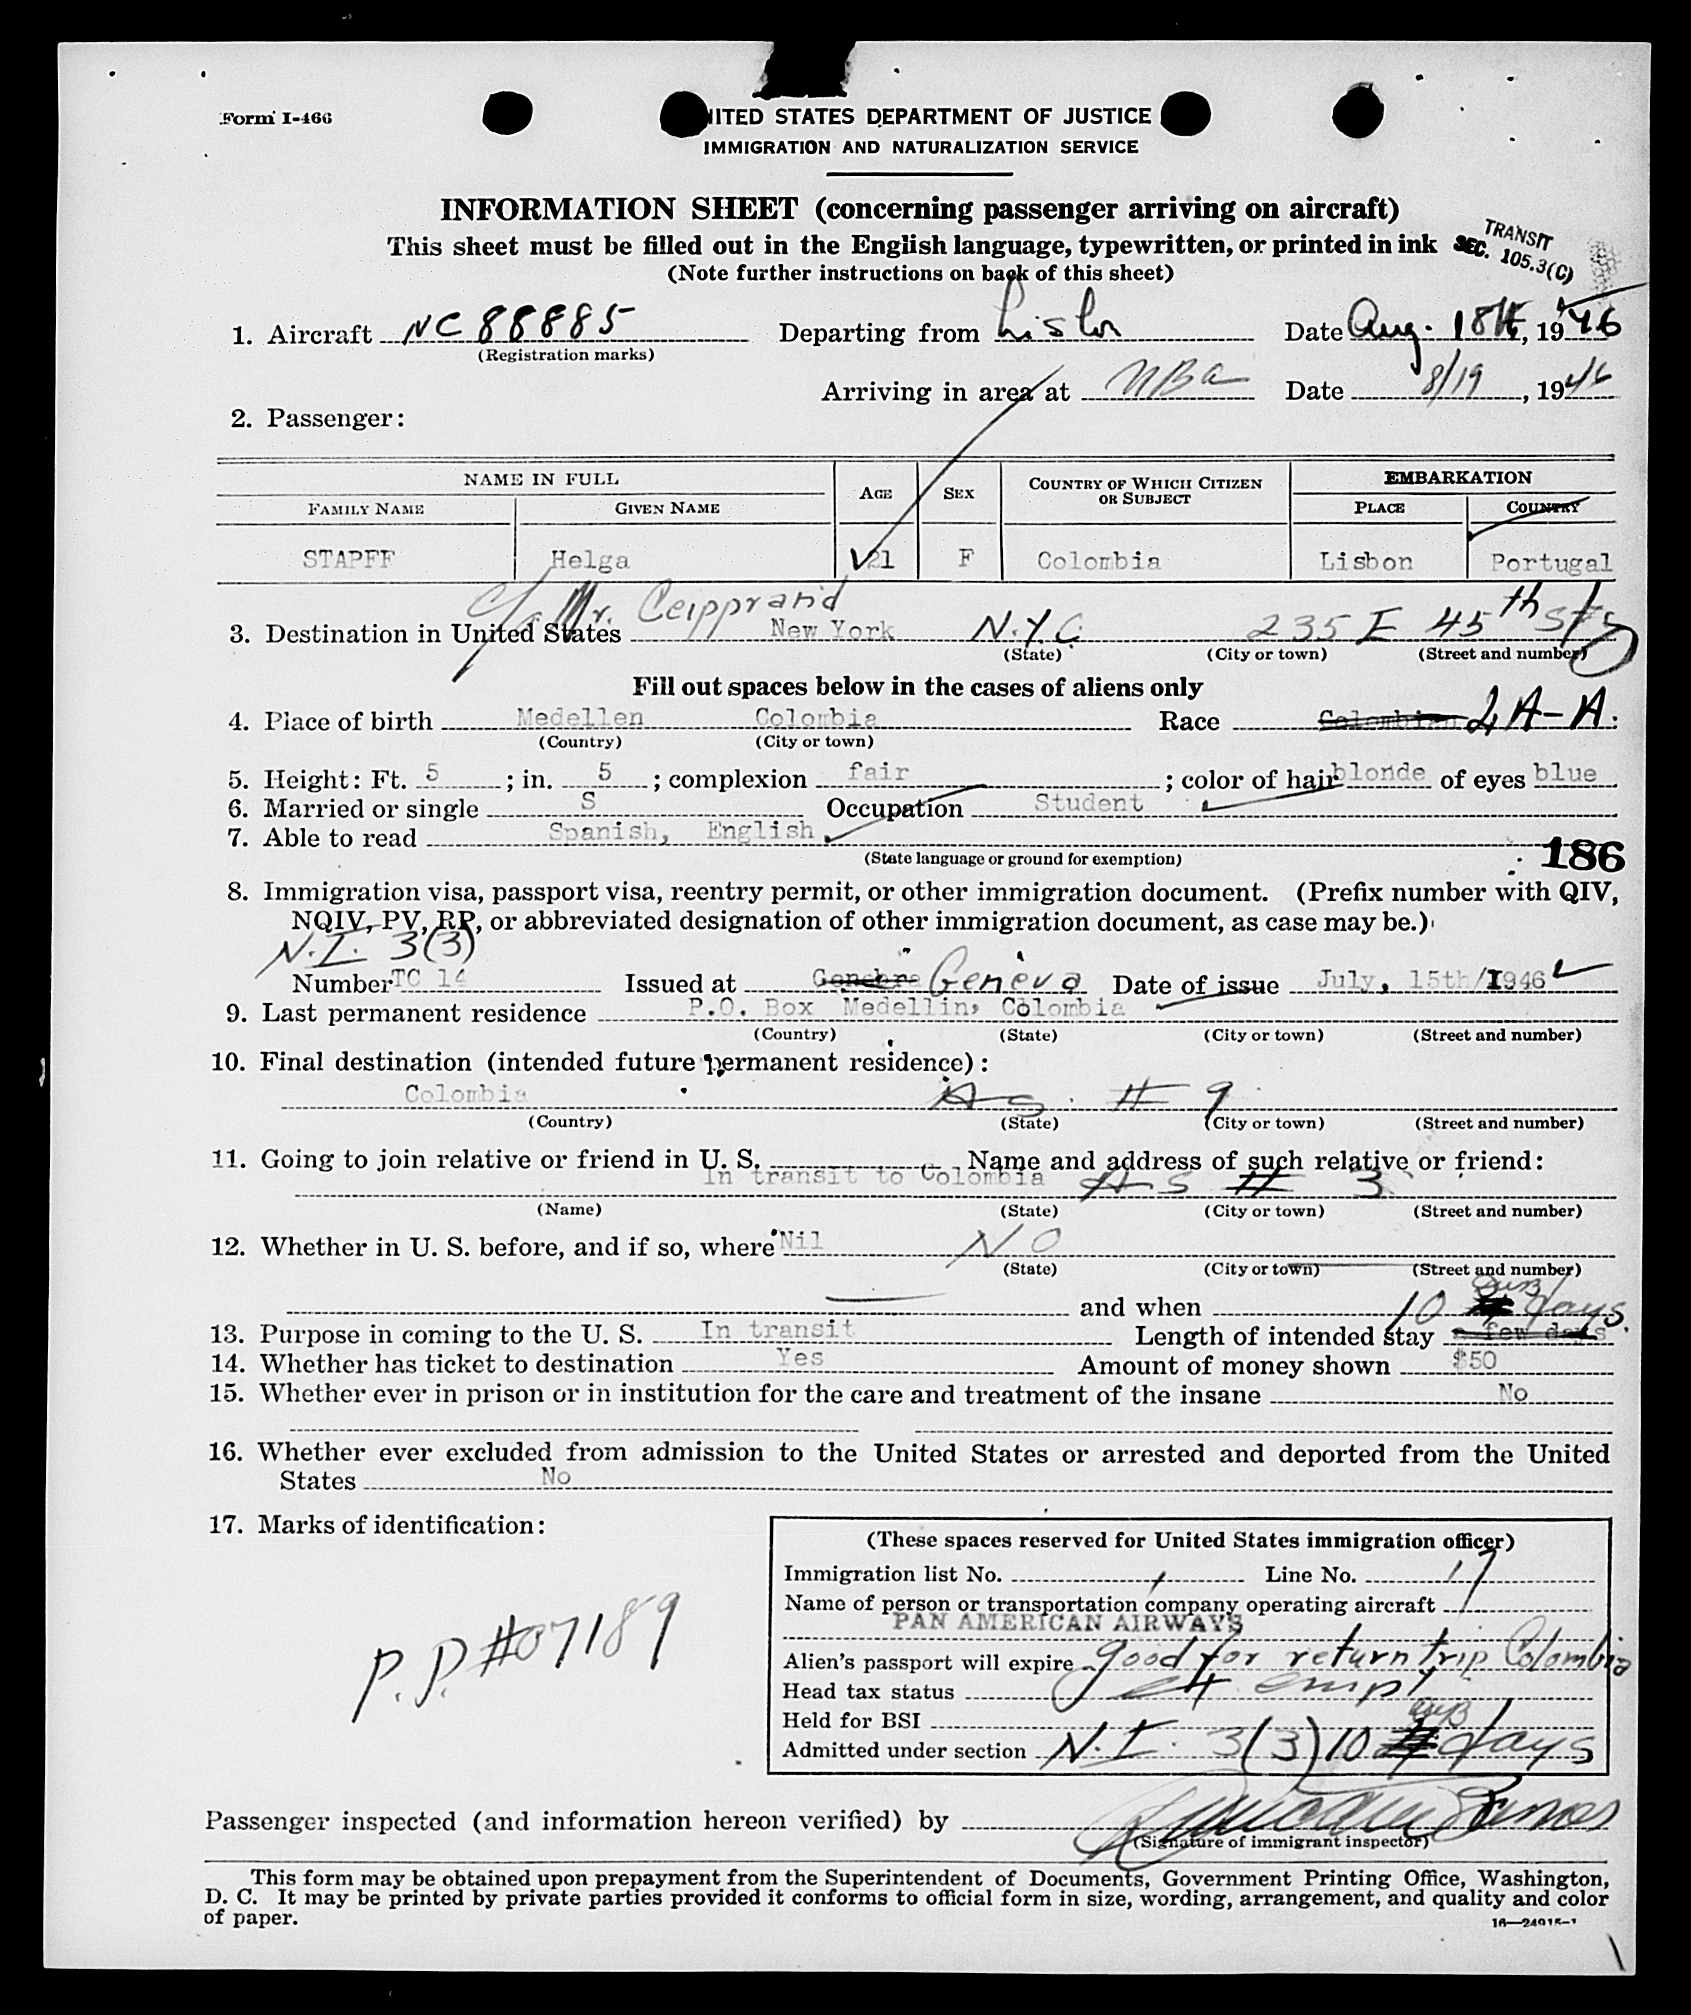 Form I-466
UNITED STATES DEPARTMENT OF JUSTICE
IMMIGRATION AND NATURALIZATION SERVICE
INFORMATION SHEET (concerning passenger arriving on aircraft)
This sheet must be filled out in the English language, typewritten, or printed in ink
TRANSIT
SEC. 105.3(C)
(Note further instructions on back of this sheet)
1. Aircraft NC 88885 Departing from Lisbon Date Aug. 18th, 1946
(Registration marks)
Arriving in area at NBA Date 8/19, 1946
2. Passenger:
NAME IN FULL AGE SEX COUNTRY OF WHICH CITIZEN OR SUBJECT EMBARKATION
FAMILY NAME GIVEN NAME PLACE COUNTRY
STAPFF Helga 21 F Colombia Lisbon Portugal
c/o Mr. Ceipprand
3. Destination in United States New York N.Y.C. 235 E 45th St
(State) (City or town) (Street and number)
Fill out spaces below in the cases of aliens only
4. Place of birth Medellen Colombia Race Colombian A-A.
(Country) (City or town)
5. Height: Ft. 5; in. 5; complexion fair; color of hair blonde of eyes blue
6. Married or single S Occupation Student
7. Able to read Spanish, English
(State language or ground for exemption)
186
8. Immigration visa, passport visa, reentry permit, or other immigration document. (Prefix number with QIV,
NQIV, PV, RP, or abbreviated designation of other immigration document, as case may be.)
N.I. 3(3)
Number TC 14 Issued at Geneva Date of issue July, 15th/1946
9. Last permanent residence P.O. Box Medellin, Colombia
(Country) (State) (City or town) (Street and number)
10. Final destination (intended future permanent residence):
Colombia As # 9
(Country) (State) (City or town) (Street and number)
11. Going to join relative or friend in U. S. Name and address of such relative or friend:
In transit to Colombia As # 3
(Name) (State) (City or town) (Street and number)
12. Whether in U. S. before, and if so, where Nil NO
(State) (City or town) (Street and number)
and when 10 days.
13. Purpose in coming to the U. S. In transit Length of intended stay a few days
14. Whether has ticket to destination Yes Amount of money shown $50
15. Whether ever in prison or in institution for the care and treatment of the insane No
16. Whether ever excluded from admission to the United States or arrested and deported from the United
States No
17. Marks of identification:
P.P. #07189
(These spaces reserved for United States immigration officer)
Immigration list No. 1 Line No. 17
Name of person or transportation company operating aircraft
PAN AMERICAN AIRWAYS
Alien's passport will expire good for return trip Colombia
Head tax status exempt
Held for BSI
Admitted under section N.I. 3(3) 10 days
Passenger inspected (and information hereon verified) by
(Signature of immigrant inspector)
This form may be obtained upon prepayment from the Superintendent of Documents, Government Printing Office, Washington,
D. C. It may be printed by private parties provided it conforms to official form in size, wording, arrangement, and quality and color
of paper.
16—24915-1